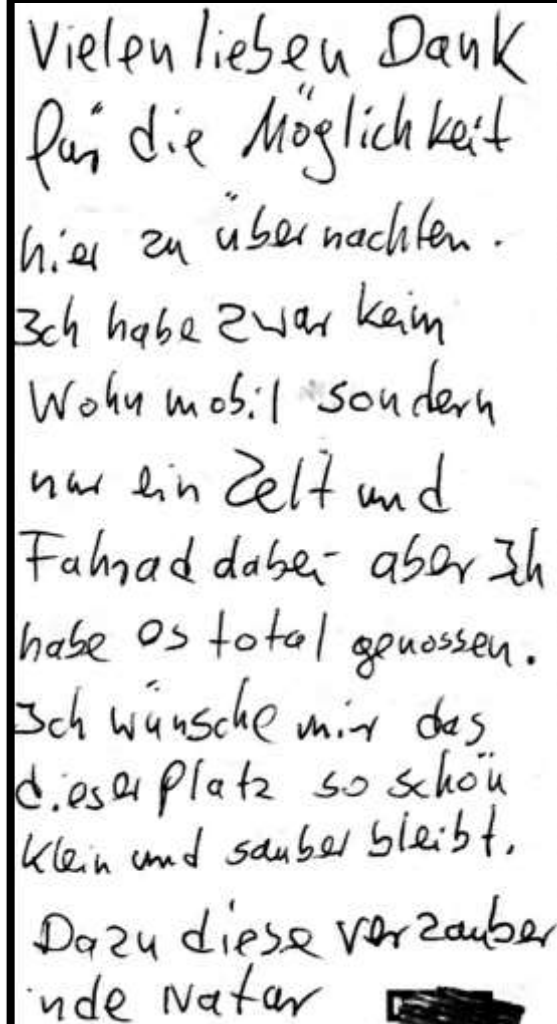 Vielen lieben Dank
für die Möglichkeit
hier zu übernachten.
Ich habe zwar kein
Wohnmobil sondern
nur ein Zelt und
Fahrad dabei- aber Ich
habe es total genossen.
Ich wünsche mir das
dieser Platz so schön
klein und sauber bleibt.
Dazu diese verzauber
nde Natur